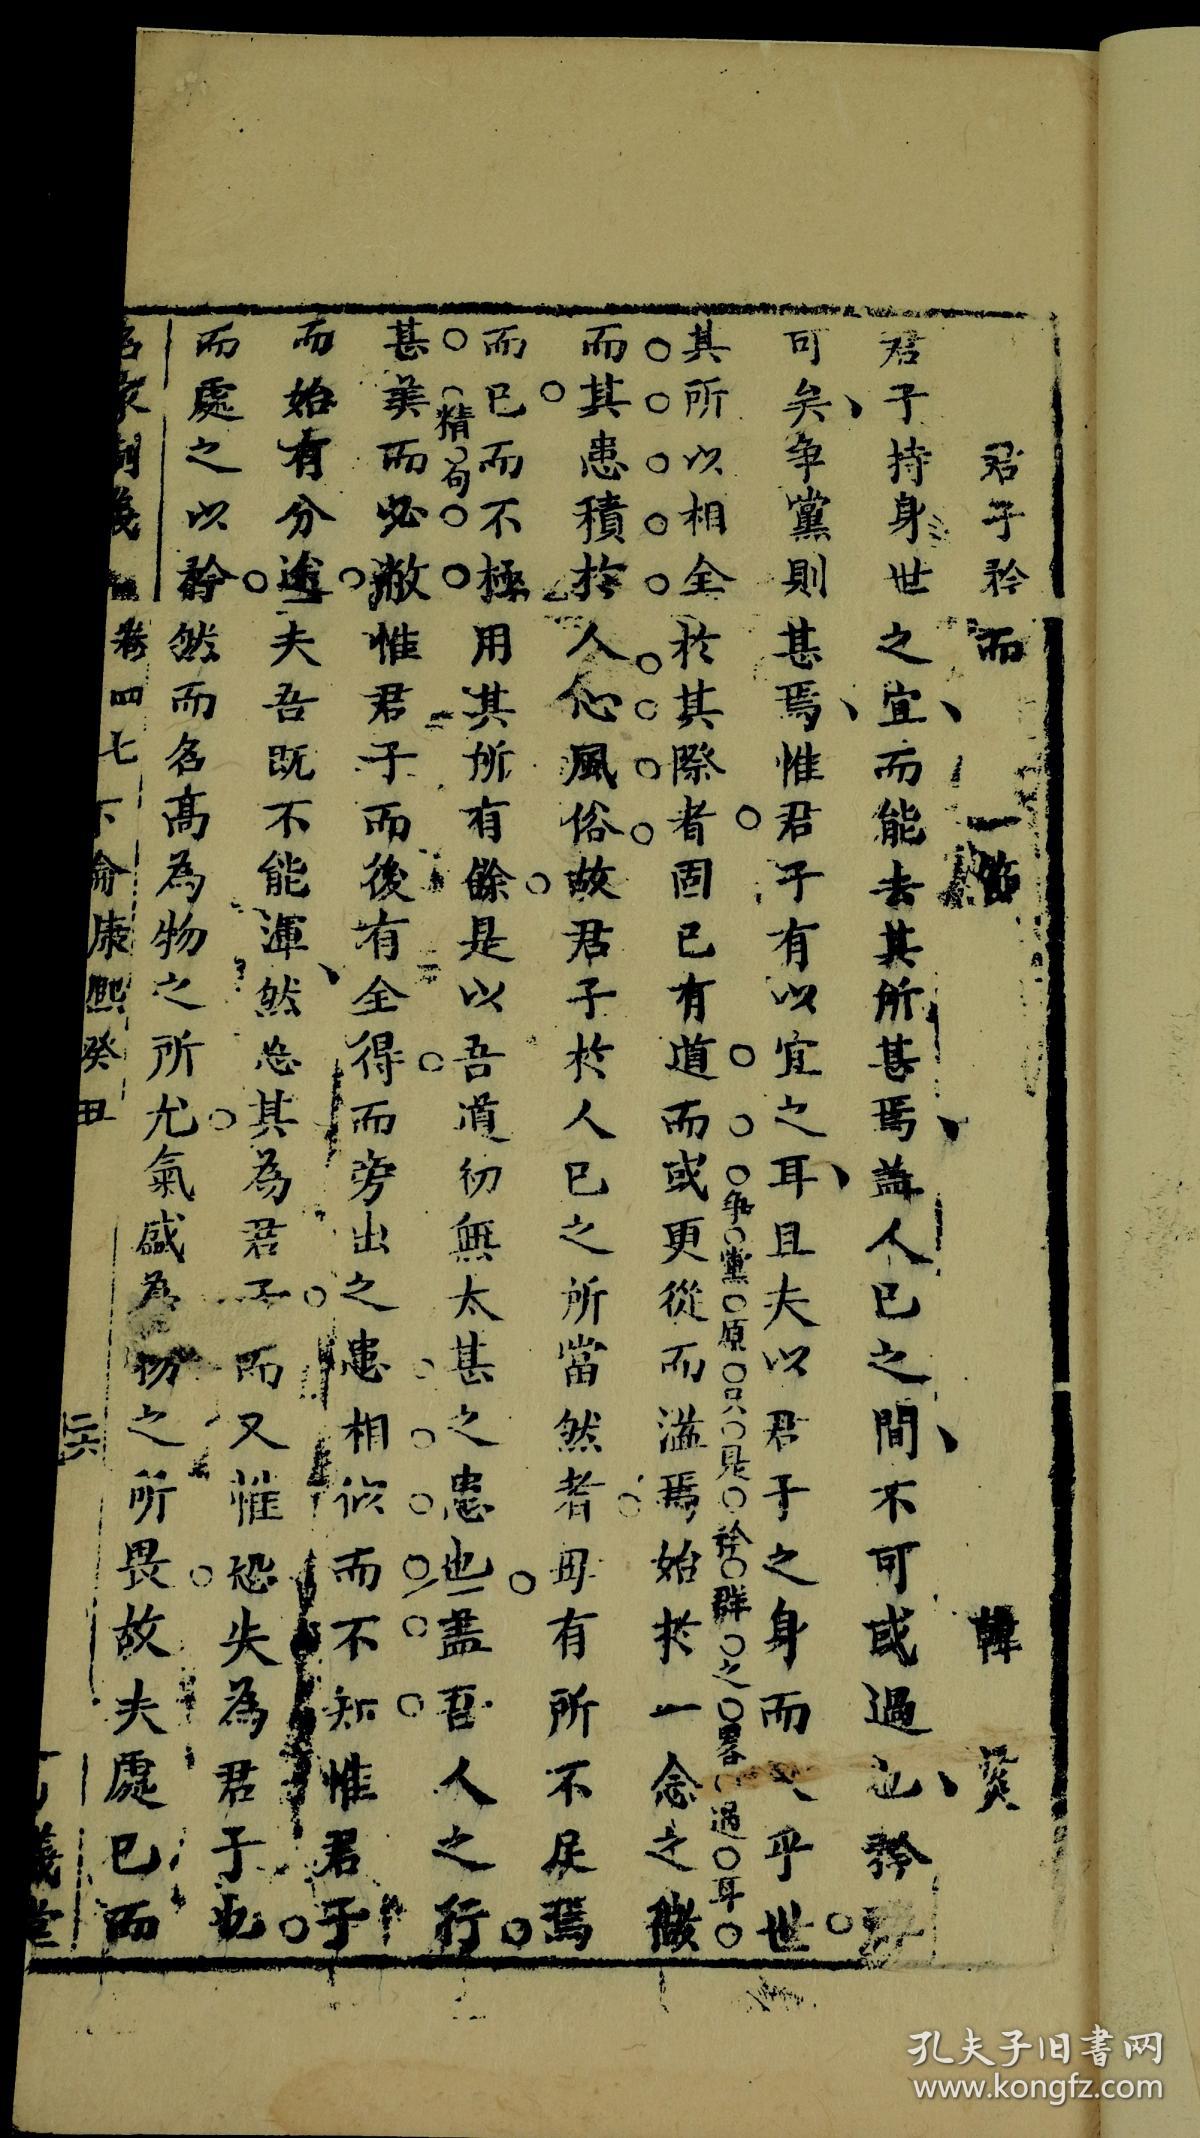 君子矜而 一節 韓菼
君子持身世之宜而能去其所甚焉蓋人已之間不可或過也矜
可矣爭黨則甚焉惟君子有以宜之耳且夫以君子之身而乎世
爭黨原只見於群之畧過耳
其所以相全於其際者固已有道而或更從而溢焉始於一念之微
而其患積於人心風俗故君子於人已之所當然者毋有所不足焉
而已而不極用其所有餘是以吾道初無太甚之患也蓋吾人之行
精句
甚美而必敝惟君子而後有全得而旁出之患相似而不知惟君子
而始有分途夫吾既不能渾然忘其為君子而又惟恐失為君子也
而處之以矜然而名高為物之所尤氣盛為物之所畏故夫處已而
名家制義 卷四七 下論康熙癸丑 二六 義堂
孔夫子旧书网
www.kongfz.com